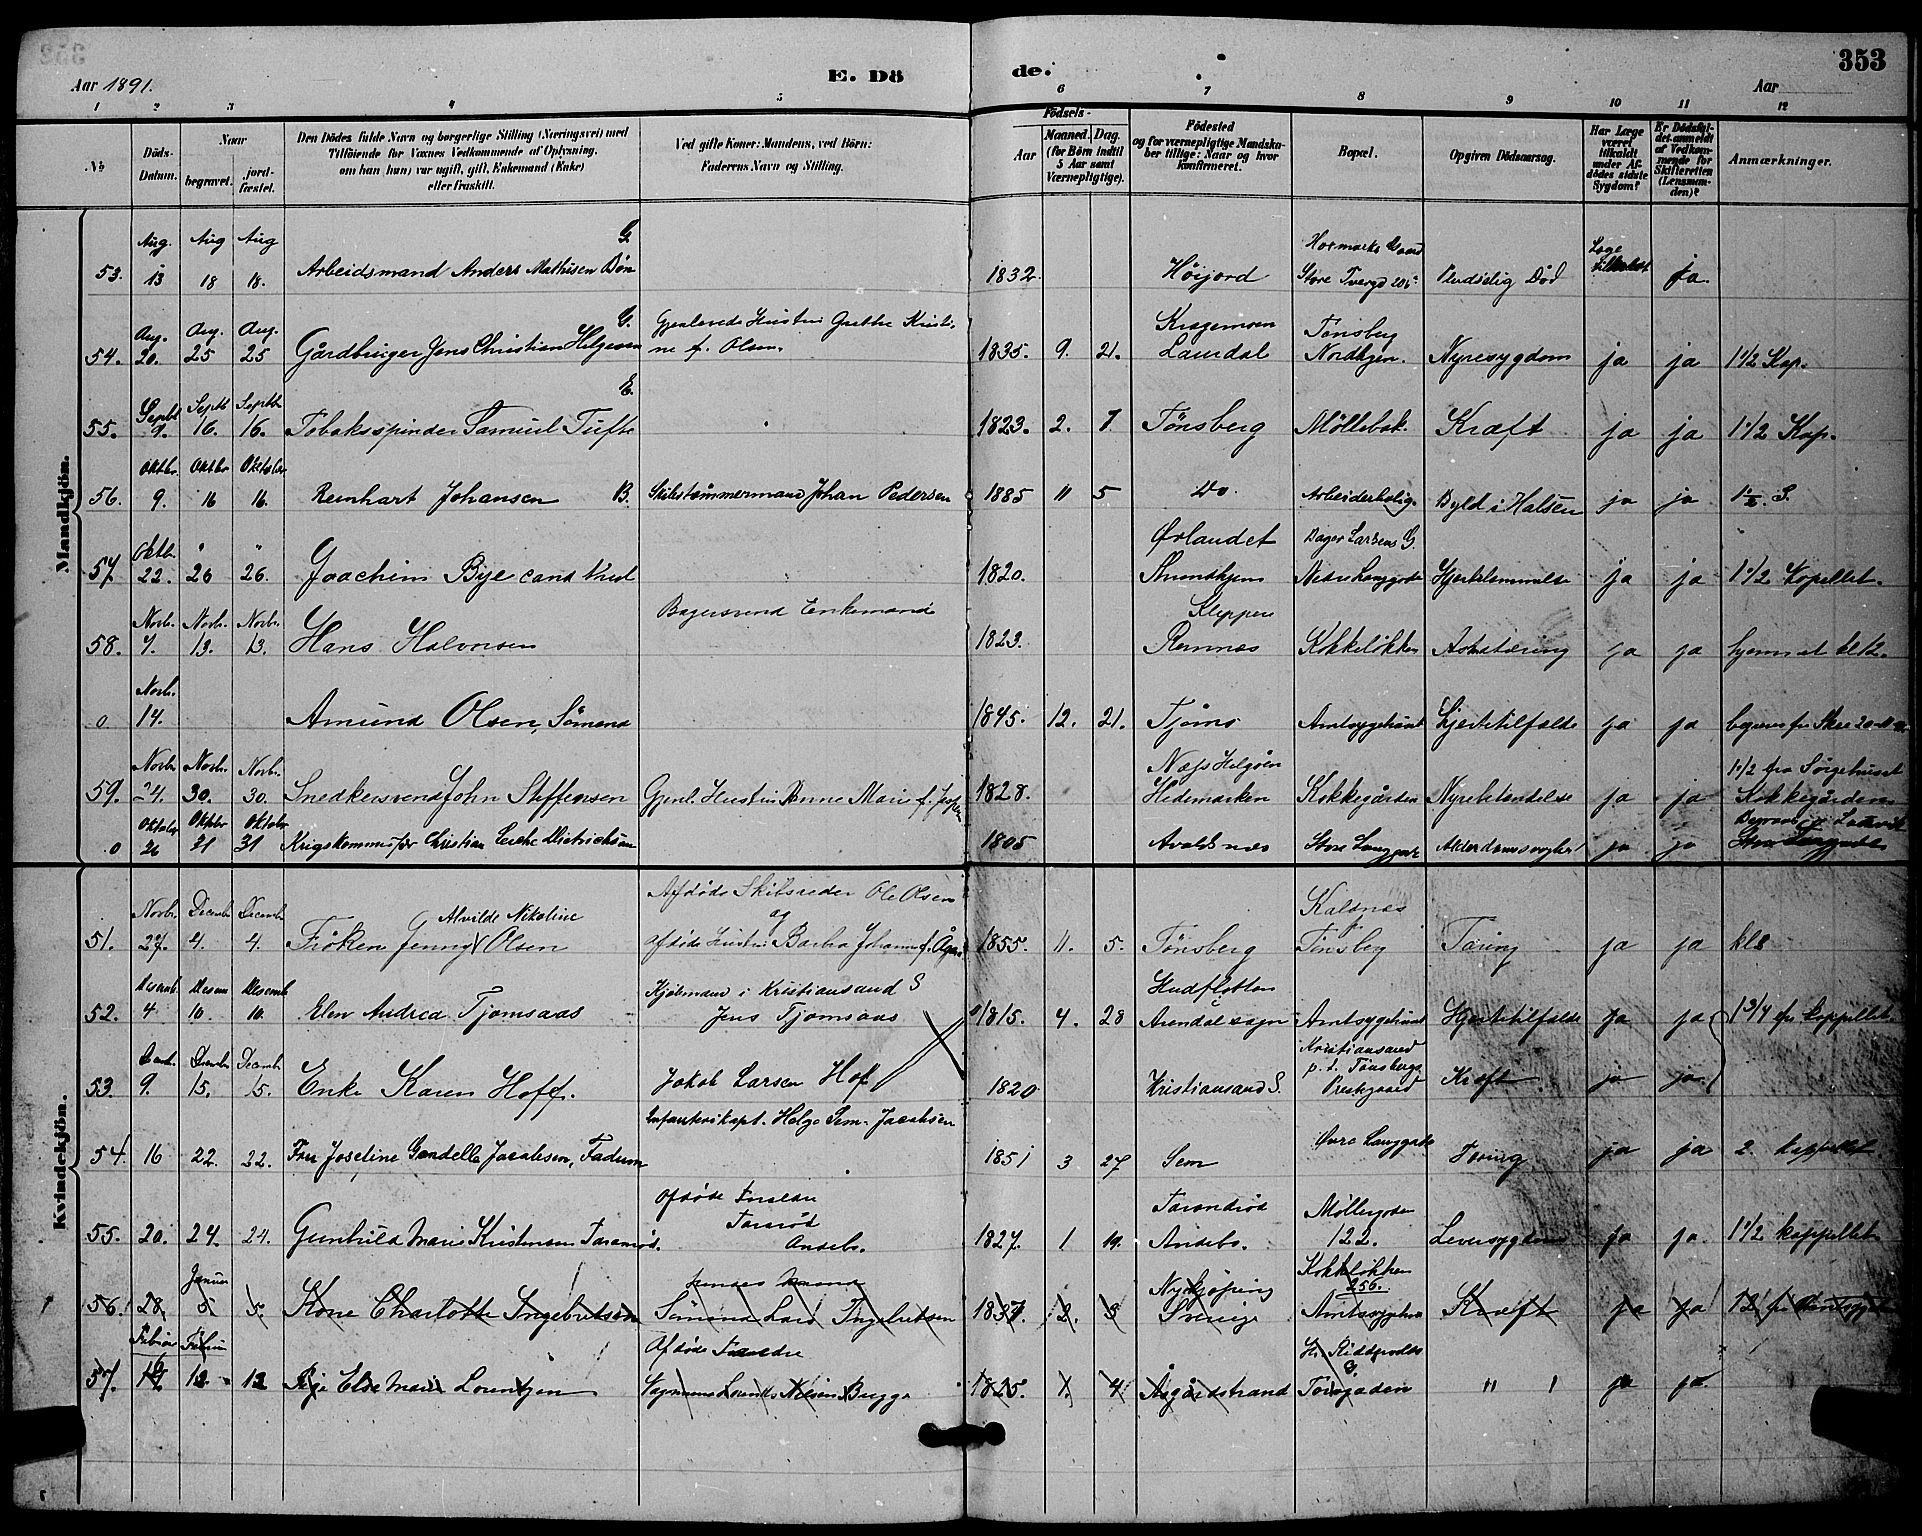 353
Aar 1891.
E. Dö
de.
Aar
1 2 3 4 5 6 7 8 9 10 11 12
No
Döds-Datum.
Naar
begravet.
jord-fæstet.
Den Dödes fulde Navn og borgerlige Stilling (Næringsvei) med
Tilföiende for Voxnes Vedkommende af Oplysning,
om han (hun) var ugift, gift, Enkemand (Enke)
eller fraskilt.
Ved gifte Koner: Mandens, ved Börn:
Faderens Navn og Stilling.
Födsels-
Aar
Maaned. Dag.
(for Börn indtil
5 Aar samt
Værnepligtige).
Födested
og for værnepligtige Mandska-
ber tillige: Naar og hvor
konfirmeret.
Bopæl.
Opgiven Dödsaarsag.
Har Læge
været
tilkaldt
under Af-
dödes sidste
Sygdom?
Er Dödsfal-
det anmeldt
af Vedkom-
mende for
Skifteretten
(Lensman-
den)?
Anmærkninger.
Mandkjön.
53. Aug. 13 Aug 18 Aug 18. Arbeidsmand Anders Mathisen Bøn G. 1832 Høijord Store Tvergd 205 Pludselig Død ja
54. Aug. 20. Aug. 25 Aug. 25 Gårdbruger Jens Christian Helgesen G. Gjenlevede Hustru Grethe Kristi-
ne f. Olsen. 1835. 9. 21. Laurdal Tønsberg
Nordbyen. Nyresygdom ja ja 1 1/2 Kap.
55. Septb 9. Septb 16. Septb 16. Tobaksspinder Samuel Tufte E. 1823. 2. 7 Tønsberg Møllebak. Kræft ja ja 1 1/2 Kap.
56. Oktbr. 9. Oktbr 16 Oktober 16. Reinhart Johansen B. Skibstømmermand Johan Pedersen 1885 11 5 Do. Arbeiderbolig Byld i Halsen ja ja 1 1/2 S.
57. Oktb. 22. " 26 " 26. Joachim Bye cand 1820. Ørlandet
Trundhjem Bager Larsens G.
Nedre Langgade Hjertelammelse ja ja 1 1/2 Kapellet.
58. Novbr. 7. Novbr. 13. Novbr. 13. Hans Halvorsen Bagersvend Enkemand 1823. Kleppen
Ramnes Kokkeløkken ja ja hjemmet kl 12.
0 Novbr. 14. Amund Olsen, Sømand 1845. 12. 21. Tjømø Amtssygehuset Hjertetilfælde ja ja
59. Novbr. 24. Novbr. 30. Novbr. 30. Snedkersvend John Steffensen Gjenl. Hustru Anne Marie f. 1828. Næs Helgøen
Hedemarken Kokkegården Nyrebetændelse ja ja 1 1/2 fra Sørgehuset
Kokkegården
0 Oktober 26 Oktober 31 Oktober 31 Krigskommissær Christian Diettrichson 1805 Avaldsnes Store Langgade Alderdomssvaghed ja ja
Kvindekjön.
51. Novbr. 27. Decemb 4. Decemb. 4. Frøken Jenny Alvilde Nikoline Olsen Afdøde Skibsreder Ole Olsen
og
afdøde Hustru 1855. 11. 5. Tønsberg Kaldnæs
Tønsberg Tæring ja ja kl 2
52. Desemb. 4 Desem 10. Desemb 10. Elen Andrea Tjomsaas Kjøbmand i Kristiansand S
Jens Tjomsaas 1815. 4. 28 Arendal sogn Amtssygehuset Hjertetilfælde ja ja 1 3/4 fra kappellet
53. 9. Decemb 15. Decemb 15. Enke Karen Hoff. Jakob Larsen Hof 1820 Kristiansand S. Kristiansand
p. t. Tønsbergs
Prestegaard Kræft ja ja
54 16 22. 22. Fru Joseline Jacobsen, Fadum Infanterikapt. Helge Sem-Jacobsen 1851 3 27 Sem Øvre Langgade Tæring ja ja 2. kappellet.
55. 20. 24. 24. Gunhild Marie Kristensen Taranrød. Afdøde Forældre
Taranrød
Andebo. 1827. 1 19. Taranrød
Andebo. Møllergaden
122. Leversygdom ja ja 1 1/2 kappellet
56. 28 Januar 5 5. Kone Charlotte Ingebretsen hendes Mand
Sømand Lars Ingebretsen 1837 2. 3 Nykjøping
Sverige Kokkeløkken
256.
Amtssygehus Kræft ja ja
57. Februar 12 12 Else Marie Lorentzen Afdøde Forældre
Nilsen Brygge 1825. 1. 4 Åsgårdstrand " ja ja